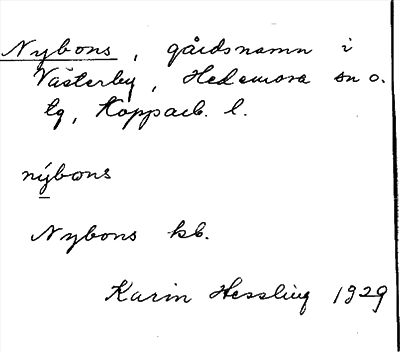 Nybons, gårdsnamn i
Västerby, Hedemora sn o.
tg, Kopparb. l.
nýbons
Nybons kb.
Karin Hessling 1929